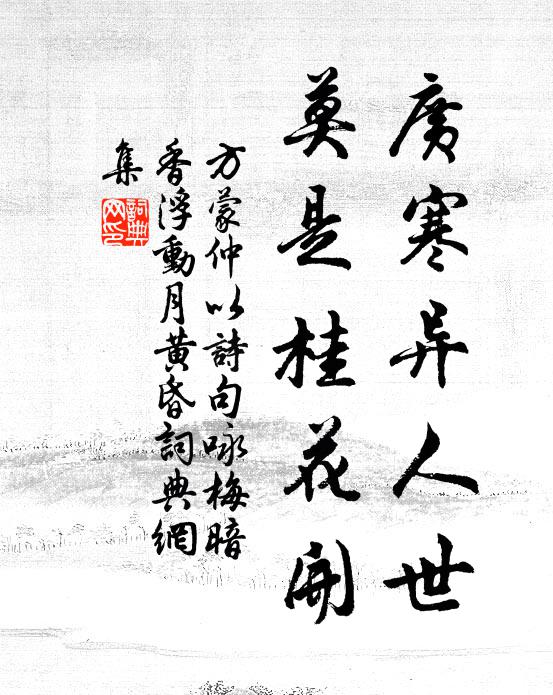 廣寒异人世
莫是桂花開
方蒙仲以詩句咏梅暗
香浮動月黄昏詞典網
集
詞典
网印